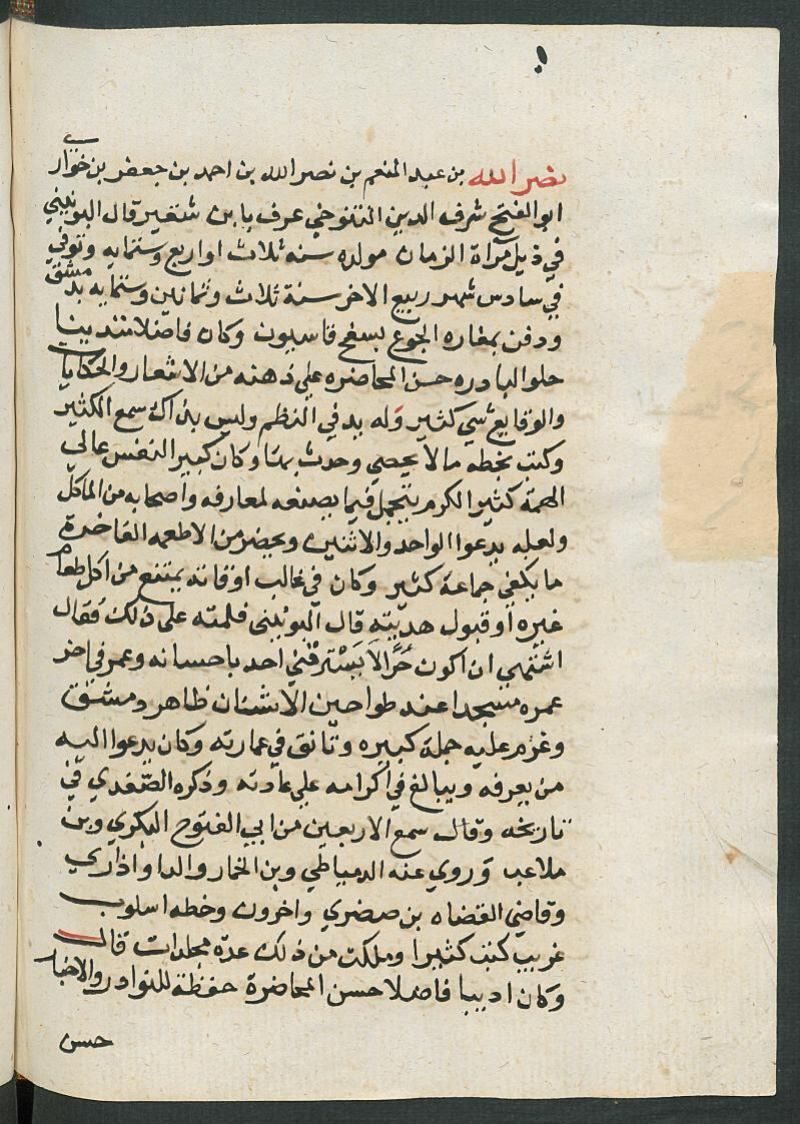 نصر الله بن عبد المنعم بن نصر الله بن احمد بن جعفر بن حواري
ابو الفتح شرف الدين التنوخي عرف بابن شقير قال اليونيني
في ذيل مرآة الزمان مولده سنه ثلاث او اربع وستمايه وتوفي
في سادس شهر ربيع الاخر سنة ثلاث وثمانين وستمايه بدمشق
ودفن بمغاره الجوع بسفح قاسيون وكان فاضلا متدينا
حلو النادره حسن المحاضره علي ذهنه من الاشعار والحكايات
والوقايع شي كثير وله يد في النظم وليس بذاك سمع الكثير
وكتب بخطه ما لا يحصي وحدث بها وكان كبير النفس عالي
الهمة كثير الكرم يتجمل فيما يصنعه لمعارفه واصحابه من الماكل
ولعله يدعوا الواحد والاثنين ويحضر من الاطعمه الفاخرة
ما يكفي جماعة كثير وكان في غالب اوقاته يمتنع من اكل طعام
غيره او قبول هديته قال اليونيني فلمته علي ذلك فقال
اشتهي ان اكون حُرًّا لا يَسْترقني احد باحسانه وعمر في اخر
عمره مسجدا عند طواحين الاشنان ظاهر دمشق
وغرم عليه جملة كبيره وتانق في عمارته وكان يدعوا اليه
من يعرفه ويبالغ في اكرامه علي عادته وذكره الصّفدي في
تاريخه وقال سمع الاربعين من ابي الفتوح البكري وبن
ملاعب وروي عنه الدمياطي وبن الخمار والداواداري
وقاضي القضاه بن صصري واخرون وخطه اسلوب
غريب كتب كثيرا وملكت من ذلك عدّه مجلدات قال
وكان اديبا فاضلا حسن المحاضرة حفظة للنوادر والاخبار
حسن